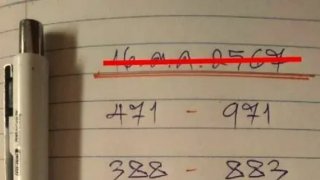 16 ต.ค. 2567
471 - 971
388 - 883